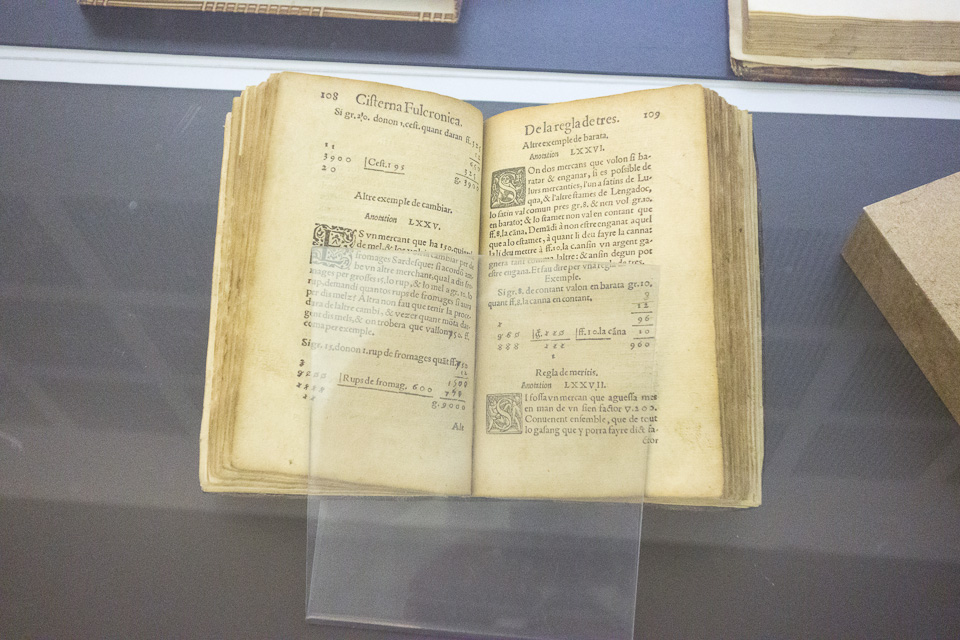 108 Cisterna Fulcronica.
Si gr. 2/0. donon 1, cest. quant daran ff. 325
12
650
11
3900 |Cest. 195
325
20
g. 3900
Altre exemple de cambiar.
Anotation LXXV.
S vn mercant que ha 150. quin-
de mel, & los volis cambiar per de
fromages Sardesque: si acordo am-
be vn altre merchant, qual a dit fro-
mages per grosses 15, lo rup, & lo mel a gr. 12. lo
rup, demandi quantos rups de fromages si aura
per dis mel? Altra non fau que tenir la proce-
dura de laltre cambi, & vezer quant mõta dar-
gent dis mels, & on trobera que vallon 750. ff.
coma per exemple.
Si gr. 15. donon 1. rup de fromages quãt ff. 750
12
1500
|Rups de fromag. 600
750
g. 9000
Alt
De la regla de tres. 109
Altre exemple de barata.
Anotation LXXVI.
SOn dos mercans que volon si ba-
ratar & enganar, li es possible de
lurs mercanties, l'un a satins de Lu-
qua, & l'altre stames de Lengadoc,
lo satin val comun pres gr. 8. & nen vol gr. 10.
en barato; & lo stamet non val en contant que
ff. 8. la cãna. Demãdi à non estre enganat aquel
que a lo estamet, à quant li deu fayre la canna?
la li deu mettre à ff. 10. la can. sin vn argent ga-
gnera tant coma l'altre: & ansin degun pot
estre engana. Et sau dire per vna regla de tres.
Exemple.
Si gr. 8. de contant valon en barata gr. 10.
quant ff. 8. la canna en contant.
8
12
1
96
960 |g. 120 |ff. 10. la cãna 10
888 12 960
1
Regla de meritis.
Anotation LXXVII.
SI fossa vn mercan que aguessa mes
en man de vn sien factor v. 200.
Conuenent ensemble, que de tout
lo gasang que y porra fayre dict fa-
ctor